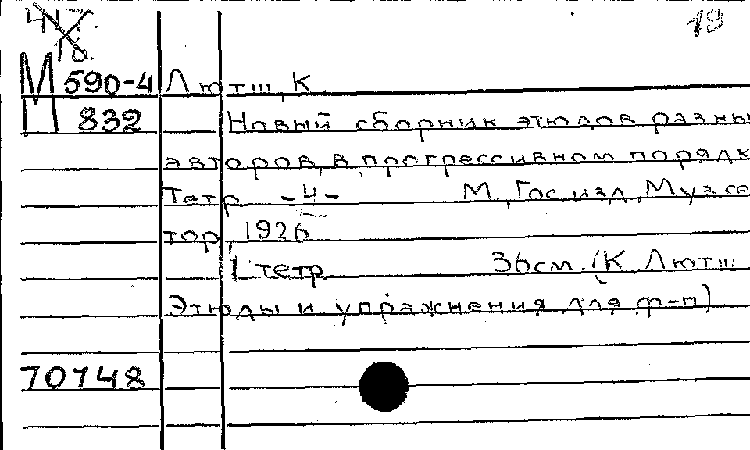 19
М 590-4 Лютш, К
М 832 Новый сборник этюдов разны
авторов, в прогрессивном порядк
Тетр -4- М, Гос.изд, Муз се
тор, 1926
1 тетр 36см. (К Лютш
Этюды и упражнения для ф-п)
70748